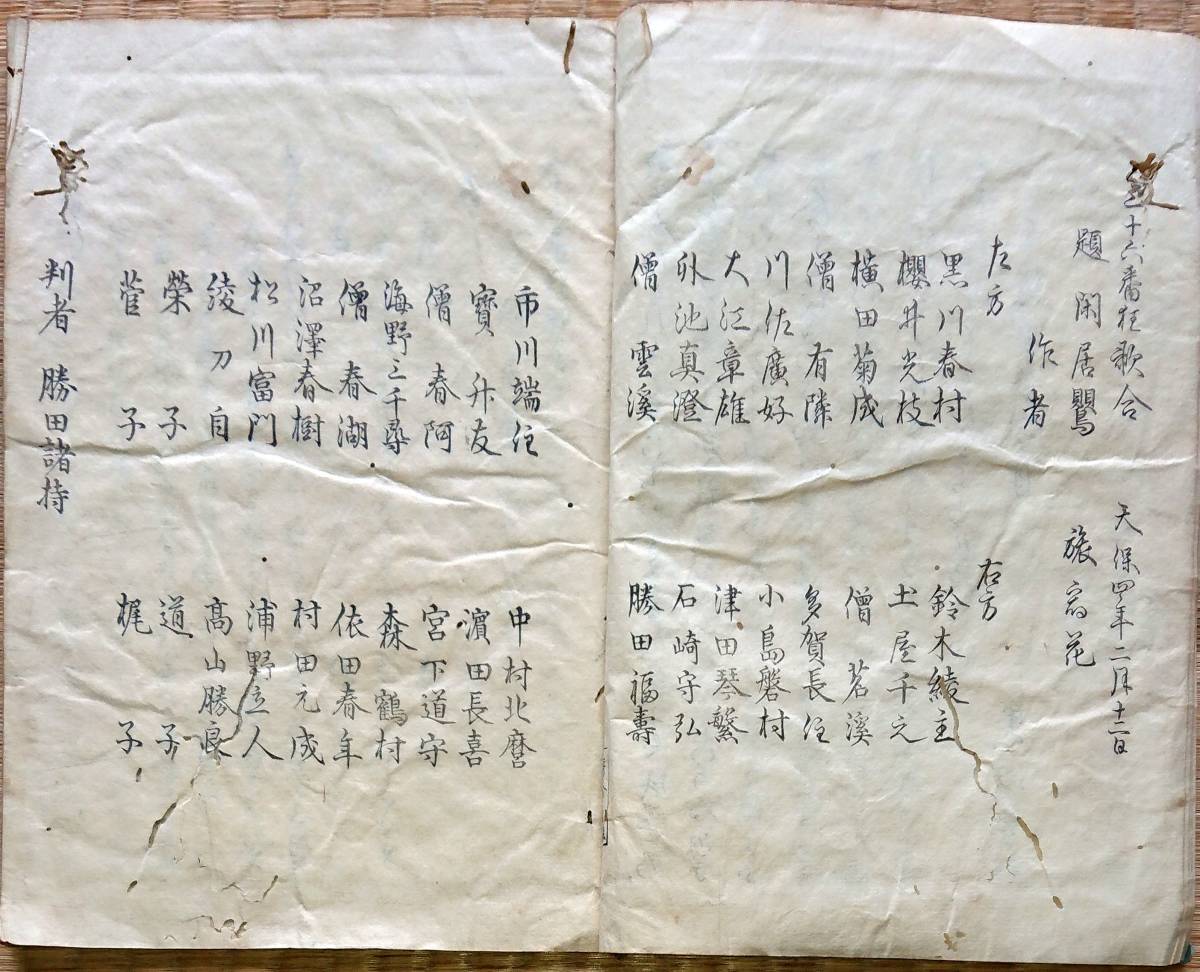 三十六番狂歌合 天保四年二月十二日
題 閑居鶯 旅宿花
作者
左方 右方
黒川春村 鈴木綾主
櫻井光枝 土屋千之
横田菊成 僧 茗溪
僧 有隣 多賀長住
川佐廣好 小島磐村
大江章雄 津田琴繁
外池真澄 石崎守弘
僧 雲溪 勝田福壽
市川端住 中村北麿
寶 升友 濵田長喜
僧 春阿 宮下道守
海野三千尋 森 鶴村
僧 春湖 依田春年
沼澤春樹 村田元成
松川富門 浦野立人
綾刀自 髙山勝良
榮子 道子
菅子 梶子
判者 勝田諸持